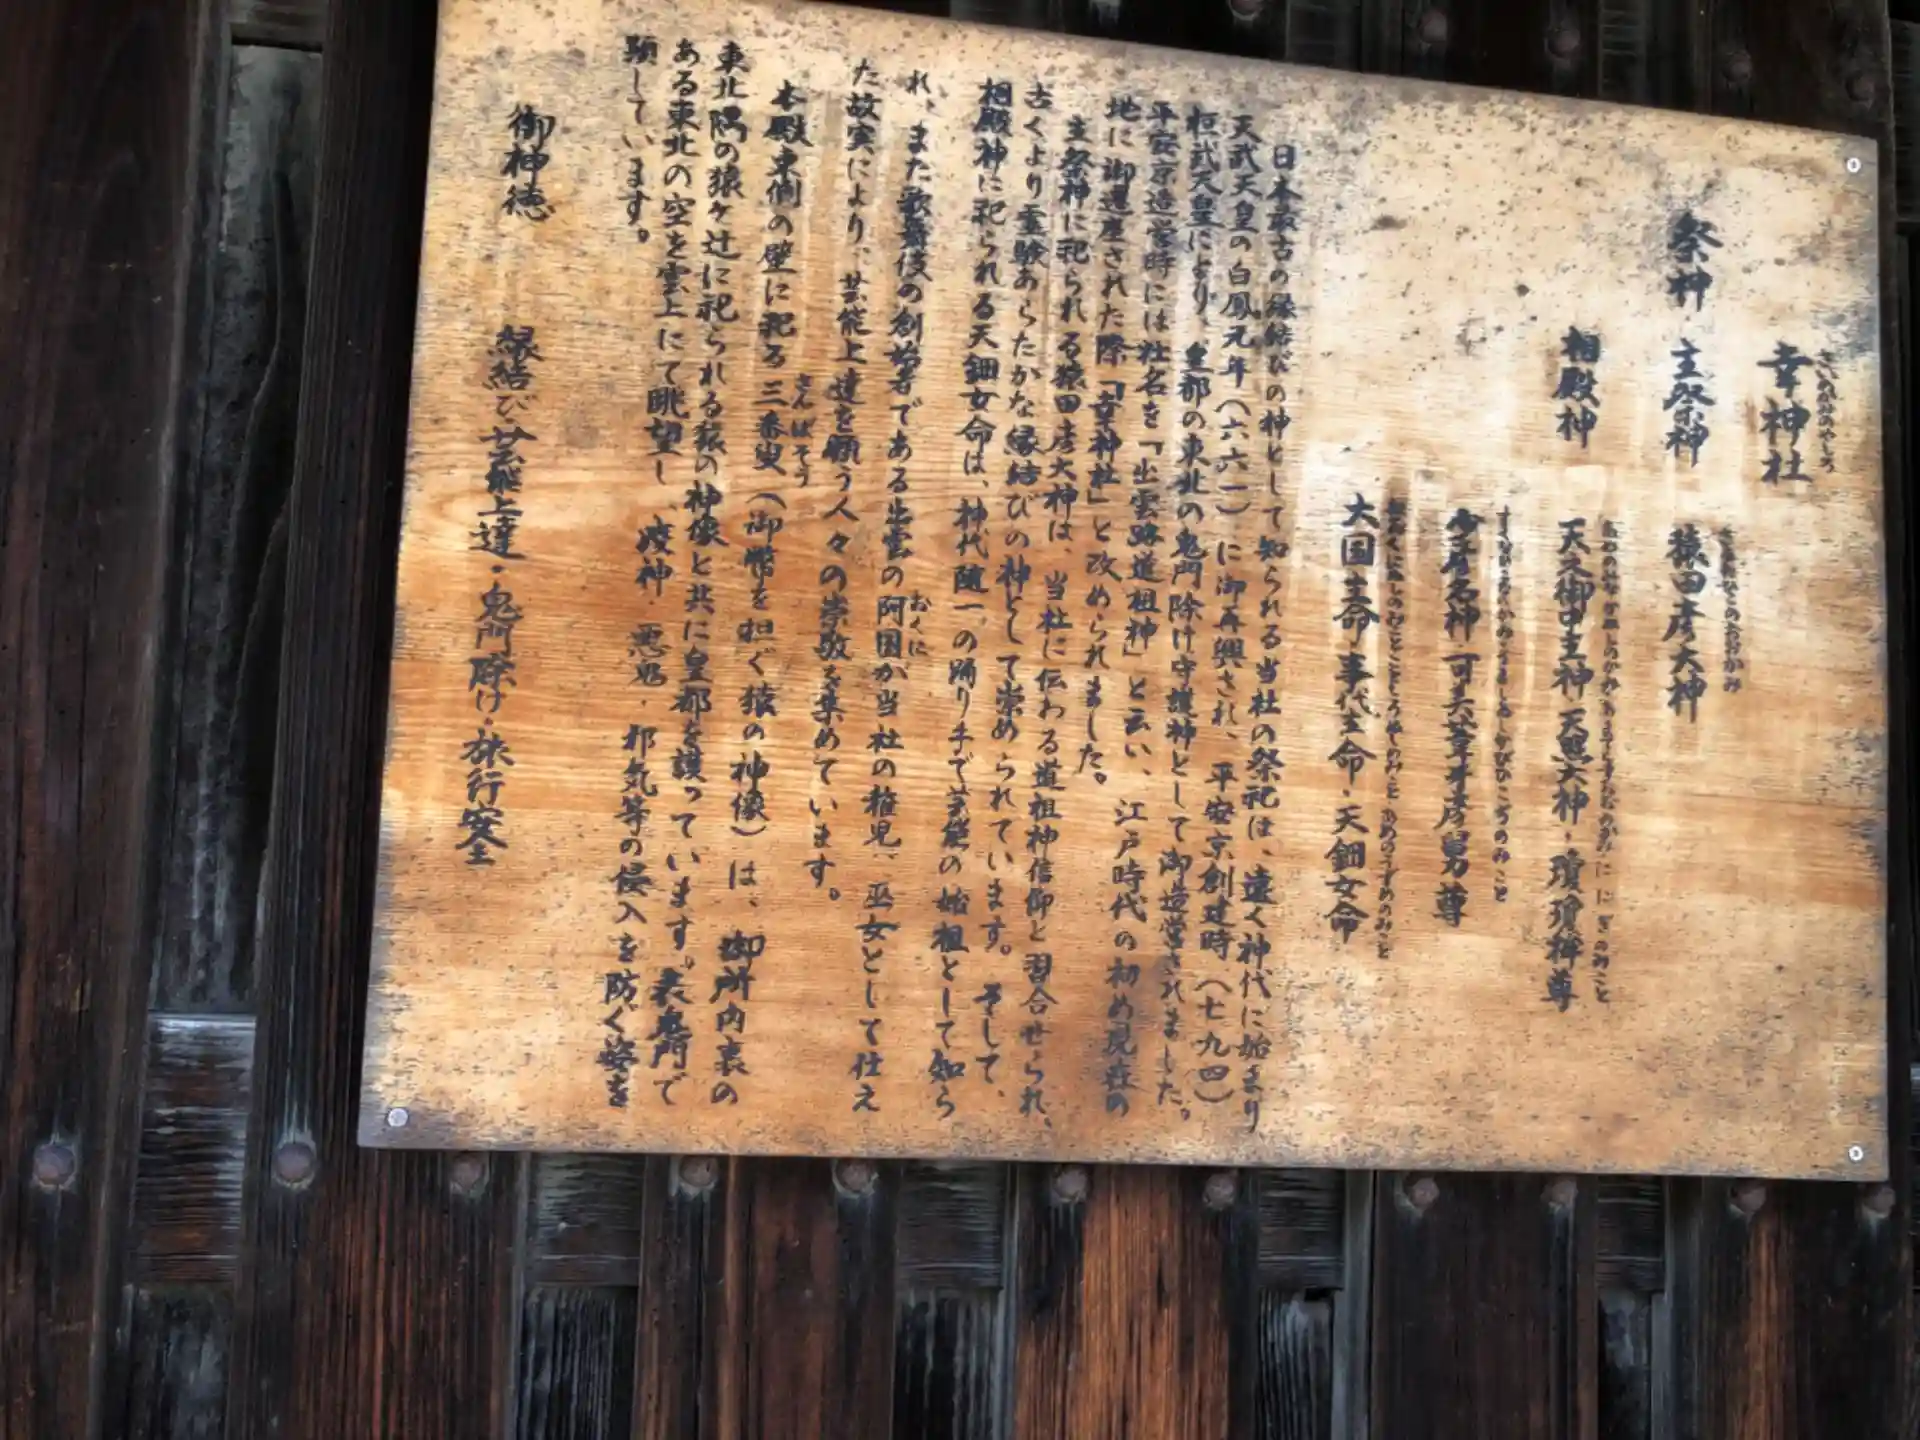 幸神社
さいのかみのやしろ
祭神 主祭神 猿田彦大神
相殿神 天之御中主神・天照大神・瓊瓊杵尊
少彦名神・可美葦芽彦舅尊
大国主命・事代主命・天鈿女命
日本最古の縁結びの神として知られる当社の祭祀は、遠く神代に始まり
天武天皇の白鳳元年(六六一)に御再興され、平安京創建時(七九四)
桓武天皇により、皇都の東北の鬼門除け守護神として御造営されました。
平安京造営時には社名を「出雲路道祖神」と云い、江戸時代の初め現在の
地に御遷座された際「幸神社」と改められました。
主祭神に祀られる猿田彦大神は、当社に伝わる道祖神信仰と習合せられ、
古くより霊験あらたかな縁結びの神として崇められています。そして、
相殿神に祀られる天鈿女命は、神代随一の踊り手で芸能の始祖として知ら
れ、また歌舞伎の創始者である出雲の阿国が当社の稚児、巫女として仕え
おくに
た故実により、芸能上達を願う人々の崇敬を集めています。
本殿東側の壁に祀る三番叟(御幣を担ぐ猿の神像)は、御所内裏の
さんばそう
東北隅の猿ヶ辻に祀られる猿の神像と共に皇都を護っています。表鬼門で
ある東北の空を雲上にて眺望し、疫神・悪鬼・邪気等の侵入を防ぐ姿を
顕しています。
御神徳 縁結び・芸能上達・鬼門除け・旅行安全